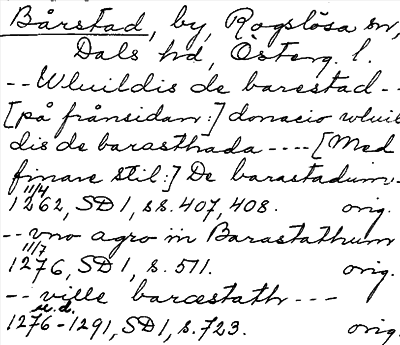 Bårstad, by, Rogslösa sn,
Dals hd, Österg. l.
-- Wluildis de barestad --
[på frånsidan:] donacio wluil
dis de barasthada ---- [Med
finare stil:] De barastadum.
11/4
1262, SD 1, ss. 407, 408. orig.
-- vno agro in Barastathum
11/7
1276, SD 1, s. 511. orig.
-- ville barœstath ---
u.d.
1276-1291, SD 1, s. 723. orig.